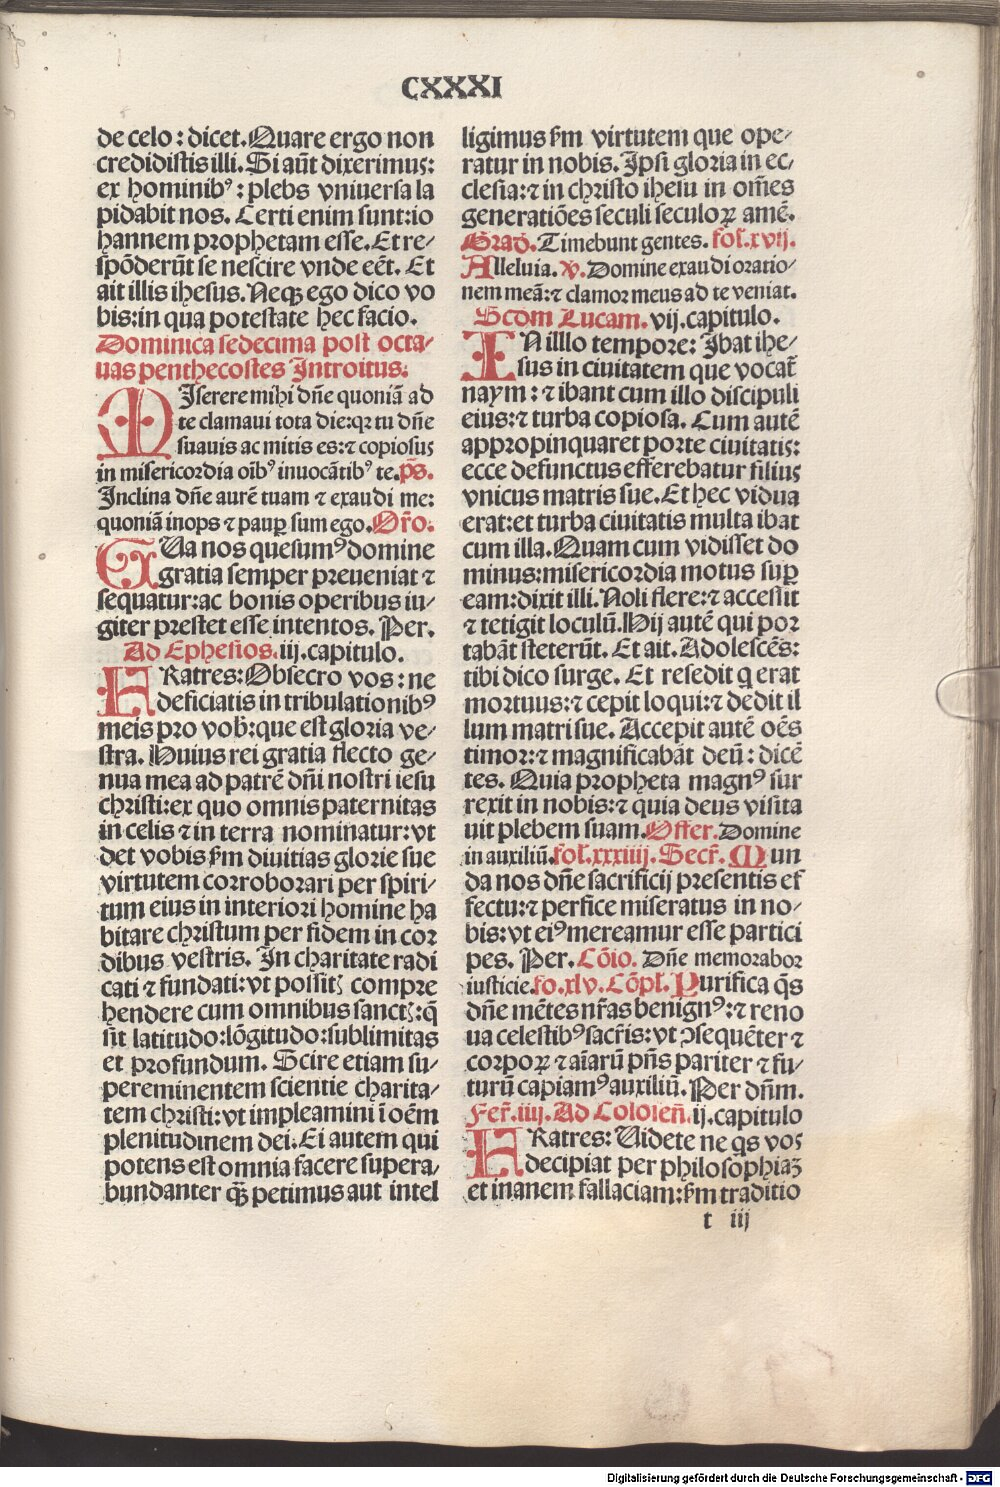 CXXXI
de celo : dicet. Quare ergo non
credidistis illi. Si aūt dixerimus:
ex hominibꝰ : plebs vniuersa la
pidabit nos. Certi enim sunt: io
hannem prophetam esse. Et re⸗
spōderūt se nescire vnde eēt. Et
ait illis ihesus. Neqꝫ ego dico vo
bis: in qua potestate hec facio.
Dominica sedecima post octa⸗
uas penthecostes Introitus.
MIserere mihi dn̄e quoniā ad
te clamaui tota die: qꝛ tu dn̄e
suauis ac mitis es: ⁊ copiosus
in misericordia oībꝰ inuocātibꝰ te. p̄s.
Inclina dn̄e aurē tuam ⁊ exaudi me:
quoniā inops ⁊ paup̲ sum ego. Or̄o.
TUa nos quesumꝰ domine
gratia semper preueniat ⁊
sequatur: ac bonis operibus iu⸗
giter prestet esse intentos. Per.
Ad Ephesios. iij. capitulo.
FRatres: Obsecro vos : ne
deficiatis in tribulationibꝰ
meis pro vob̄: que est gloria ve⸗
stra. Huius rei gratia flecto ge⸗
nua mea ad patrē dn̄i nostri iesu
christi: ex quo omnis paternitas
in celis ⁊ in terra nominatur: vt
det vobis s̄m diuitias glorie sue
virtutem corroborari per spiri⸗
tum eius in interiori homine ha
bitare christum per fidem in cor
dibus vestris. In charitate radi
cati ⁊ fundati: vt possitꝭ compre
hendere cum omnibus sanctꝭ: q̄
sit latitudo: lōgitudo: sublimitas
et profundum. Scire etiam su⸗
pereminentem scientie charita⸗
tem christi: vt impleamini ī oēm
plenitudinem dei. Ei autem qui
potens est omnia facere supera⸗
bundanter qꝫ̄ petimus aut intel
ligimus s̄m virtutem que ope⸗
ratur in nobis. Ipsi gloria in ec⸗
clesia: ⁊ in christo ihesu in om̄es
generatiōes seculi seculoꝝ amē.
Grad̄. Timebunt gentes. fol. xvij.
Alleluia. ℣. Domine exaudi oratio⸗
nem meā: ⁊ clamor meus ad te veniat.
Scd̄m Lucam. vij. capitulo.
IN illlo tempore: Ibat ihe⸗
sus in ciuitatem que vocat̄
naym : ⁊ ibant cum illo discipuli
eius: ⁊ turba copiosa. Cum autē
appropinquaret porte ciuitatis:
ecce defunctus efferebatur filius
vnicus matris sue. Et hec vidua
erat: et turba ciuitatis multa ibat
cum illa. Quam cum vidisset do
minus: misericordia motus sup̲
eam: dixit illi. Noli flere: ⁊ accessit
⁊ tetigit loculū. Hij autē qui por
tabāt steterūt. Et ait. Adolescēs:
tibi dico surge. Et resedit q̲ erat
mortuus: ⁊ cepit loqui: ⁊ dedit il
lum matri sue. Accepit autē oēs
timor: ⁊ magnificabāt deū : dicē
tes. Quia propheta magnꝰ sur
rexit in nobis: ⁊ quia deus visita
uit plebem suam. Offer. Domine
in auxiliū. fol. xxxiiij. Secr̄. Mun
da nos dn̄e sacrificij presentis ef
fectu: ⁊ perfice miseratus in no⸗
bis: vt eiꝰ mereamur esse partici
pes. Per. Cōio. Dn̄e memorabor
iusticie. fo. xlv. Cōpl. Purifica q̄s
dn̄e mētes nr̄as benignꝰ: ⁊ reno
ua celestibꝰ sacr̄is: vt ꝯsequēter ⁊
corporꝝ ⁊ aīarū pn̄s pariter ⁊ fu⸗
turū capiamꝰ auxiliū. Per dn̄m.
Fer̄. iiij. Ad Colosen̄. ij. capitulo
FRatres: Videte ne q̲s vos
decipiat per philosophiaꝫ
et inanem fallaciam: s̄m traditio
t iij
Digitalisierung gefördert durch die Deutsche Forschungsgemeinschaft - DFG